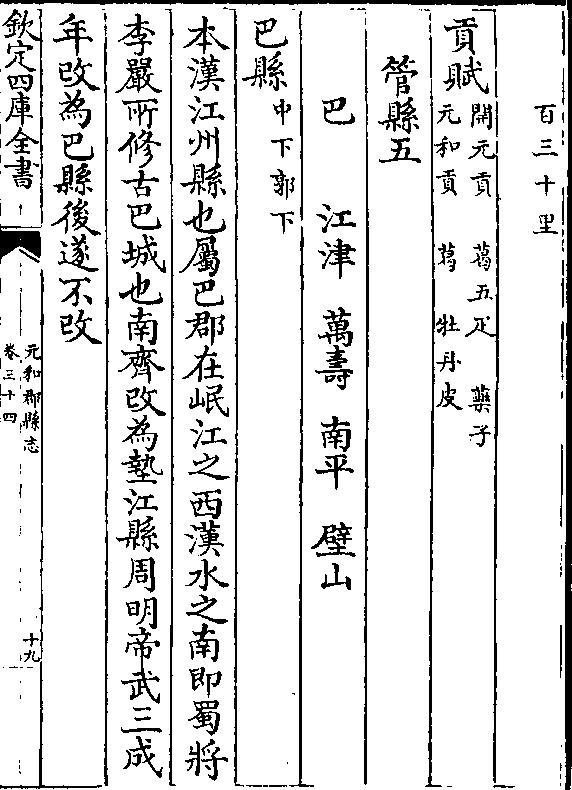 百三十里
貢賦 開元貢 葛五疋 藥子
元和貢 葛 牡丹皮
管縣五
巴 江津 萬壽 南平 壁山
巴縣 中下郭下
本漢江州縣也屬巴郡在岷江之西漢水之南即蜀將
李嚴所修古巴城也南齊改為墊江縣周明帝武三成
年改為巴縣後遂不改
欽定四庫全書
元和郡縣志
卷三十四
十九